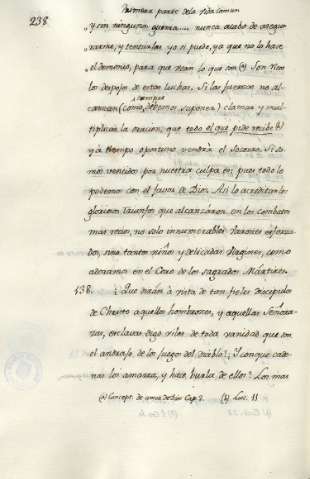 238.
Panorama parte de la Vida comun
„y con ningunos guerra .... nunca acaba de asegu-
rarme, y tentarlas yo si pude, ya que no lo hace
„el demonio, para que vean lo que son (a) Son
los despojos de estas luchas. Si las fuerzas no al-
cancan (como siempre debemos suponer) clamar y mul-
tiplicar la oracion, que todo el que pide recibe (b)
y á tiempo oportuno vendrá el Socorro. Si so-
mos vencidos por nuestra culpa es; pues todo lo
podemos con el favor de Dios. Asi lo acreditan los
gloriosos triunfos que alcanzáron en los combates
mas recios, no solo innumerables Varones esforza-
dos, sino tantos niños y delicadas Virgines, como
adoramos en el Coro de los sagrados Mártires.
438. ¿Que dirán á vista de tan fieles Discipulos
de Christo aquellos hombrones, y aquellas Señora-
zas, esclavas digo viles de toda vanidad que son
el andrajo de los juegos del diablo? ¿Y con que cade-
nas los amarra, y hace burla de ellos? Los mas
(a) Concept. de amor de Dios Cap. 2. (b) Luc. 11